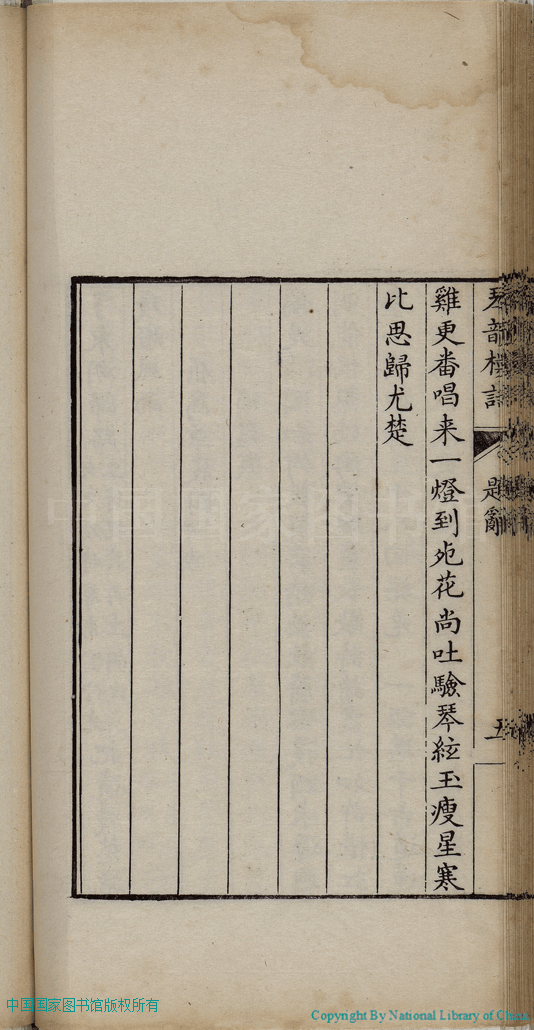 雞更番唱来一燈到死花尚吐驗琴絃玉瘦星寒
比思歸尤楚
題辭
五
中国国家图书馆版权所有
Copyright By National Library of China